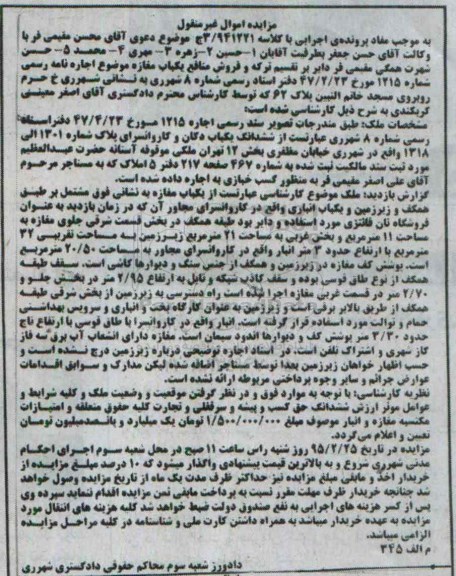 مزایده اموال غیرمنقول
به موجب مفاد پرونده‌ی اجرایی با کلاسه ۳/۹۴۱۲۲۱ج موضوع دعوی آقای محسن مقیمی فر با
وکالت آقای حسن جعفر بطرفیت آقایان ۱-حسین ۲-زهره ۳- مهری ۴- محمد ۵- حسن
شهرت همگی مقیمی فر دایر بر تقسیم ترکه و فروش منافع یکباب مغازه موضوع اجاره نامه رسمی
شماره ۱۲۱۵ مورخ ۴۷/۲/۲۳ دفتر اسناد رسمی شماره ۸ شهرری به نشانی شهرری خ حرم
روبروی مسجد خاتم النبین پلاک ۶۲ که توسط کارشناس محترم دادگستری آقای اصغر معینی
کریکندی به شرح ذیل کارشناسی شده است:
مشخصات ملک: طبق مندرجات تصویر سند رسمی اجاره ۱۲۱۵ مورخ ۴۷/۴/۲۳ دفتراسناد
رسمی شماره ۸ شهرری عبارتست از ششدانگ یکباب دکان و کاروانسرای پلاک شماره ۱۳۰۱ الی
۱۳۱۸ واقع در شهرری خیابان مظفری بخش ۱۲ تهران ملکی موقوفه آستانه حضرت عبدالعظیم
مورد ثبت سند مالکیت ثبت شده به شماره ۴۶۷ صفحه ۲۱۷ دفتر ۵ املاک که به مستاجر مرحوم
آقای علی اصغر مقیمی فر به منظور کسب خبازی به اجاره داده شده است.
گزارش بازدید: ملک موضوع کارشناسی عبارتست از یکباب مغازه به نشانی فوق مشتمل بر طبق
همکف و زیرزمین و یکباب انباری واقع در کاروانسرای مجاور آن که در زمان بازدید به عنوان
فروشگاه نان فانتزی مورد استفاده و دایر بود طبقه همکف در بخش قسمت شرقی جلوی مغازه به
مساحت ۱۱ مترمربع و بخش غربی به مساحت ۲۱ مترمربع زیرزمین به مساحت تقریبی ۳۲
مترمربع با ارتفاع حدود ۳ متر انبار واقع در کاروانسرای مجاور به مساحت ۲۰/۵۰ مترمربع
است. پوشش کف مغازه در زیرزمین و همکف از جنس سنگ و دیوارها کاشی است. سقف طبقه
همکف از نوع طاق قوسی بوده و سقف کاذب شبکه و تایل به ارتفاع ۲/۹۵ متر در بخش جلو و
۲/۷۰ متر در قسمت غربی مغازه اجرا شده است راه دسترسی به زیرزمین از بخش شرقی طبقه
همکف از طریق بالابر برقی است و زیرزمین به عنوان کارگاه پخت و انباری و سرویس بهداشتی
حمام و توالت مورد استفاده قرار گرفته است. انبار واقع در کاروانسرا با طاق قوسی با ارتفاع تاج
حدود ۳/۳۰ متر پوشش کف و دیوارها اندود سیمان است. مغازه دارای انشعاب آب برق سه فاز
گاز شهری و اشتراک تلفن است. در اسناد اجاره توضیحی درباره زیرزمین درج نشده است و
حسب اظهار خواهان زیرزمین بعدا توسط مستاجر اضافه شده لیکن مدارک و سوابق اقدامات
عوارض جرائم و سایر وجوه پرداختی مربوطه ارائه نشده است.
نظریه کارشناسی: با توجه به موارد فوق و در نظر گرفتن موقعیت و وضعیت ملک و کلیه شرایط و
عوامل موثر ارزش ششدانگ حق کسب و پیشه و سرقفلی و تجارت کلیه حقوق متعلقه و امتیازات
مکتسبه مغازه و انبار موصوف مبلغ ۱/۵۰۰/۰۰۰/۰۰۰ تومان یک میلیارد و پانصدمیلیون تومان
تعیین و اعلام می‌گردد.
مزایده در تاریخ ۹۵/۲/۲۵ روز شنبه راس ساعت ۱۱ صبح در محل شعبه سوم اجرای احکام
مدنی شهرری شروع و به بالاترین قیمت پیشنهادی واگذار میشود که ۱۰ درصد مبلغ مزایده از
خریدار اخذ و مابقی مبلغ مزایده نیز حداکثر ظرف مدت یک ماه از تاریخ مزایده وصول خواهد
شد چنانچه خریدار ظرف مهلت مقرر نسبت به پرداخت مابقی ثمن مزایده اقدام ننماید سپرده وی
پس از کسر هزینه های اجرایی به نفع صندوق دولت ضبط خواهد شد کلیه هزینه های انتقال مورد
مزایده به عهده خریدار میباشد به همراه داشتن کارت ملی و شناسنامه در کلیه مراحل مزایده
الزامی میباشد.
م الف ۳۴۵
دادورز شعبه سوم محاکم حقوقی دادگستری شهرری